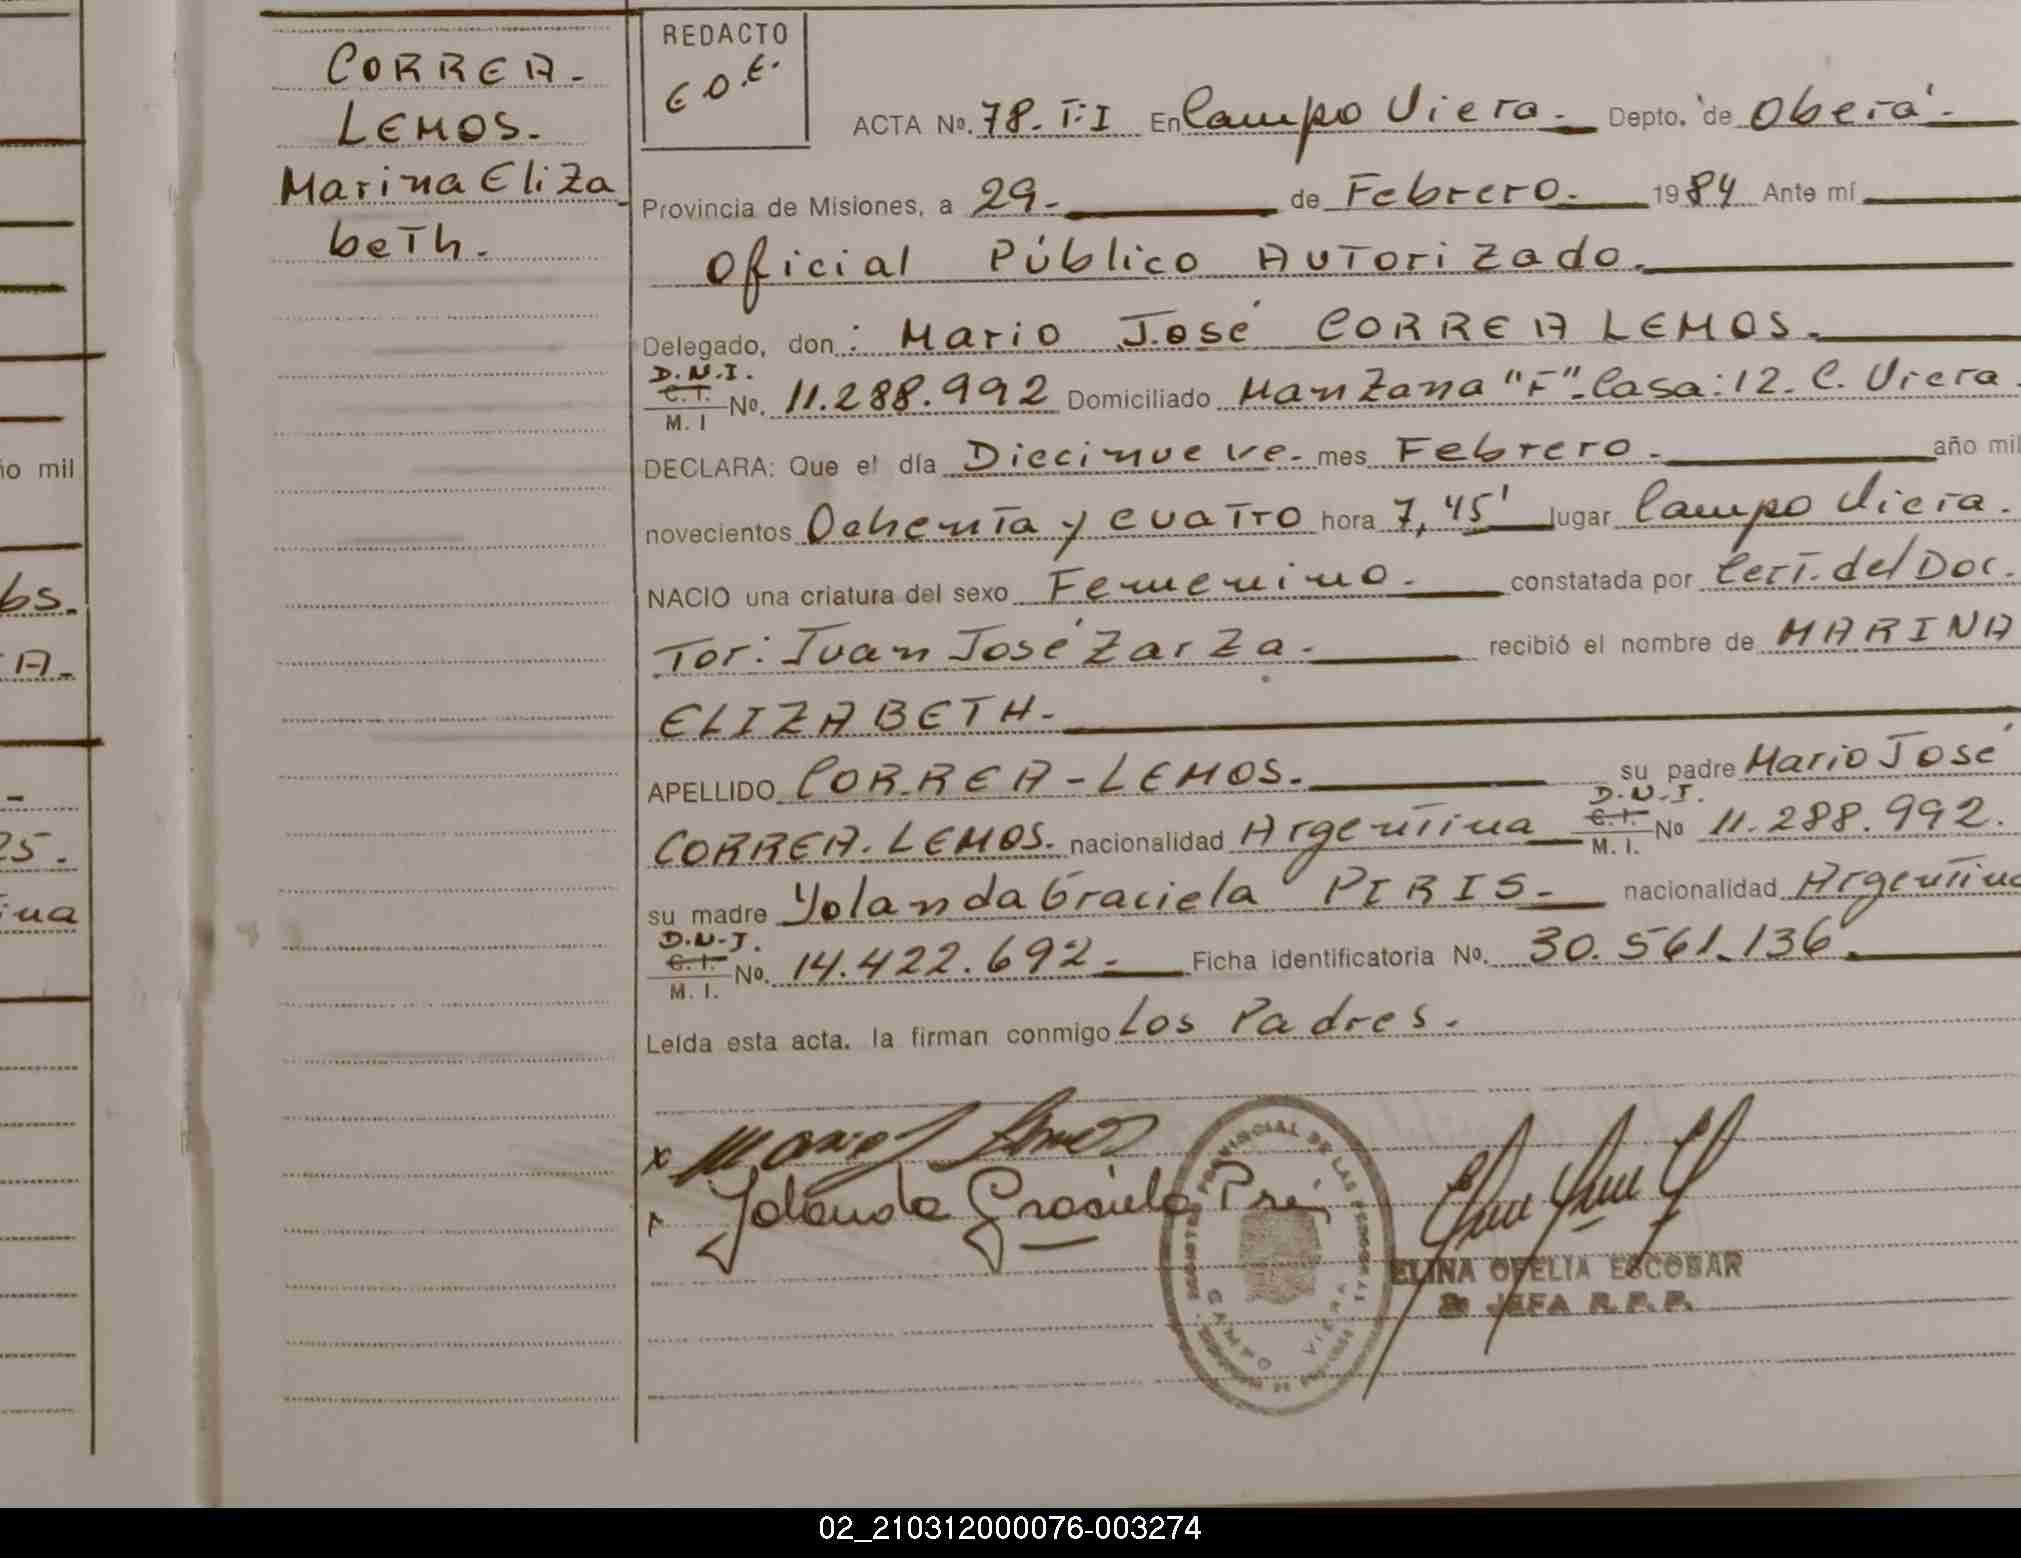 CORREA-
LEMOS.
Marina Eliza
beth.
REDACTO
E O.E.
ACTA No. 78. T:I En Campo Viera. Depto. de Oberá.
Provincia de Misiones, a 29. de Febrero. 1984 Ante mí
Oficial Público Autorizado.
Delegado, don: Mario José CORREA LEMOS.
D.N.I.
C.I.
M. I No. 11.288.992 Domiciliado Manzana "F". Casa: 12. C. Viera.
DECLARA: Que el día Diecinueve. mes Febrero. año mil
novecientos Ochenta y cuatro hora 7,45' lugar Campo Viera.
NACIO una criatura del sexo Femenino. constatada por Cert. del Doc.
Tor: Juan José Zarza. recibió el nombre de MARINA
ELIZABETH.
APELLIDO CORREA-LEMOS. su padre Mario José
D.N.I.
CORREA. LEMOS. nacionalidad Argentina C.I. M. I. No 11.288.992.
su madre Yolanda Graciela PIRIS. nacionalidad Argentina
D.N.I.
C.I.
M. I. No. 14.422.692. Ficha identificatoria No. 30.561.136.
Leída esta acta, la firman conmigo Los Padres.
x
Yolanda Graciela
PROVINCIAL DE LAS
CAMPO VIERA
ELINA OFELIA ESCOBAR
JEFA R.P.P.
ño mil
bs.
A.
25.
ina
02_210312000076-003274